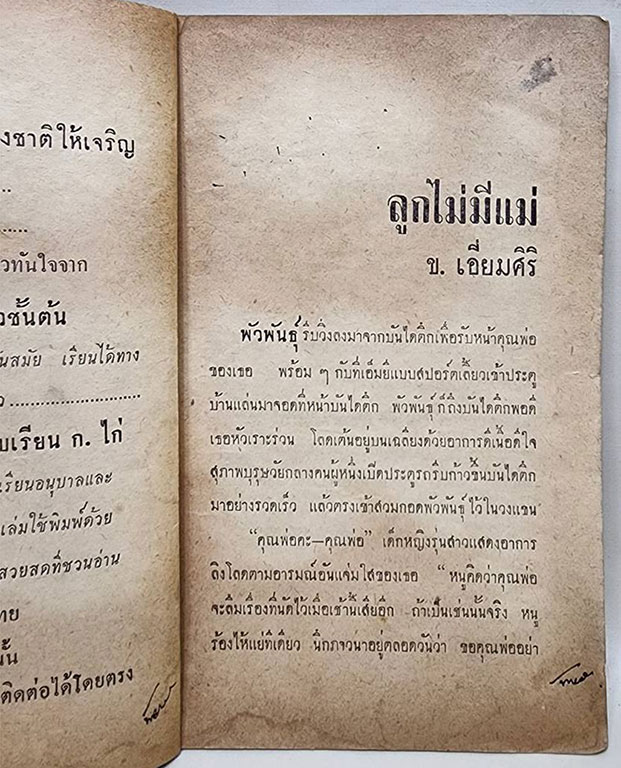 งชาติให้เจริญ
วทันใจจาก
วชั้นต้น
นสมัย เรียนได้ทาง
บเรียน ก. ไก่
เรียนอนุบาลและ
เล่มใช้พิมพ์ด้วย
สวยสดที่ชวนอ่าน
ทย
นั้น
ติดต่อได้โดยตรง
ลูกไม่มีแม่
ข. เอี่ยมศิริ
พัวพันธุ์ รีบวิ่งลงมาจากบันไดตึกเพื่อรับหน้าคุณพ่อ
ของเธอ พร้อม ๆ กับที่เอ็มยีแบบสปอร์ตเลี้ยวเข้าประตู
บ้านแล่นมาจอดที่หน้าบันไดตึก พัวพันธุ์ก็ถึงบันไดตึกพอดี
เธอหัวเราะร่วน โลดเต้นอยู่บนเฉลียงด้วยอาการดีเนื้อดีใจ
สุภาพบุรุษวัยกลางคนผู้หนึ่งเปิดประตูรถรีบก้าวขึ้นบันไดตึก
มาอย่างรวดเร็ว แล้วตรงเข้าสวมกอดพัวพันธุ์ไว้ในวงแขน
“คุณพ่อคะ—คุณพ่อ” เด็กหญิงรุ่นสาวแสดงอาการ
ลิงโลดตามอารมณ์อันแจ่มใสของเธอ “หนูคิดว่าคุณพ่อ
จะลืมเรื่องที่นัดไว้เมื่อเช้านี้เสียอีก ถ้าเป็นเช่นนั้นจริง หนู
ร้องไห้แย่ทีเดียว นึกภาวนาอยู่ตลอดวันว่า ขอคุณพ่ออย่า